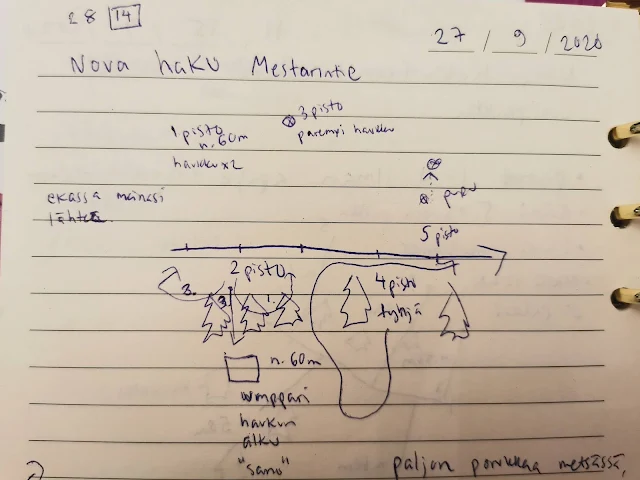 28 14
27 / 9 / 2020
Nova haku Mestarintie
3 pisto
parempi haukku
1 pisto
n. 60m
haukku x 2
ekassa meinasi
lähteä.
5 pisto
2 pisto
4 pisto
tyhjä
3.
3
1.
n. 60m
umppari
haukun
alku
"sano"
paljon porukkaa metsässä,